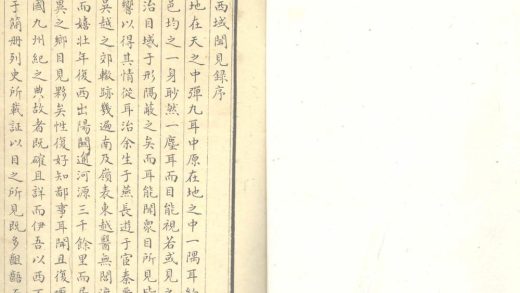 西域聞見錄序
地在天之中彈丸耳中原在地之中一隅耳
邑均之一身眇然一塵耳而目能視若或見之
治目域于形隔蔽之矣而耳能聞衆目所見皆
響以得其情從耳治余生于燕長遊于宦秦
吳越之郊轍跡幾遍南及嶺表東越醫無閭海
而嬉壯年後西出陽關遡河源三千餘里而
異之鄉目見夥矣性復好知鄙事耳聞且復
國九州紀之典故者既確且詳而伊吾以西
于簡冊列史所載証以目之所見既多齟齬